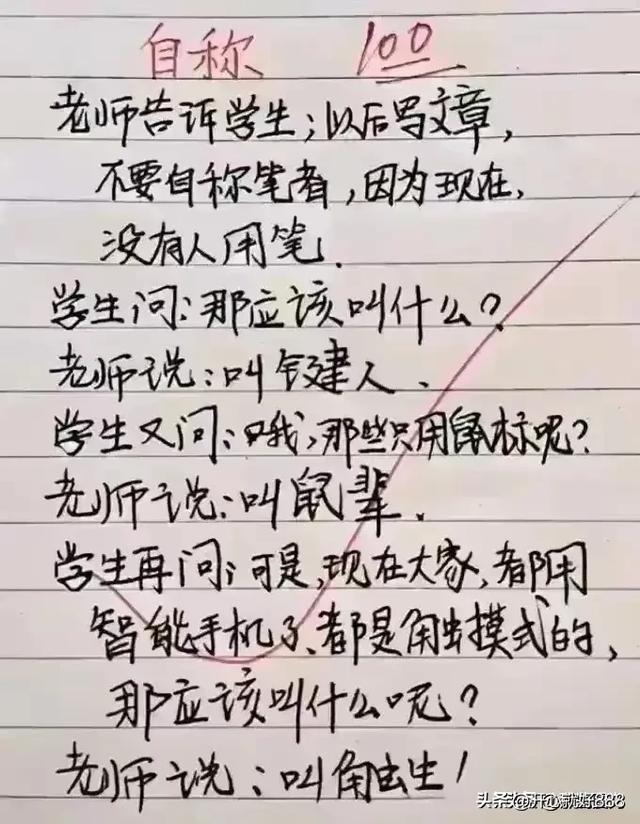 自称 100
老师告诉学生;以后写文章,
不要自称笔者,因为现在,
没有人用笔.
学生问:那应该叫什么?
老师说:叫键人.
学生又问:哦,那些只用鼠标呢?
老师说:叫鼠辈.
学生再问;可是,现在大家,都用
智能手机了、都是触摸式的,
那应该叫什么呢?
老师说:叫触生!